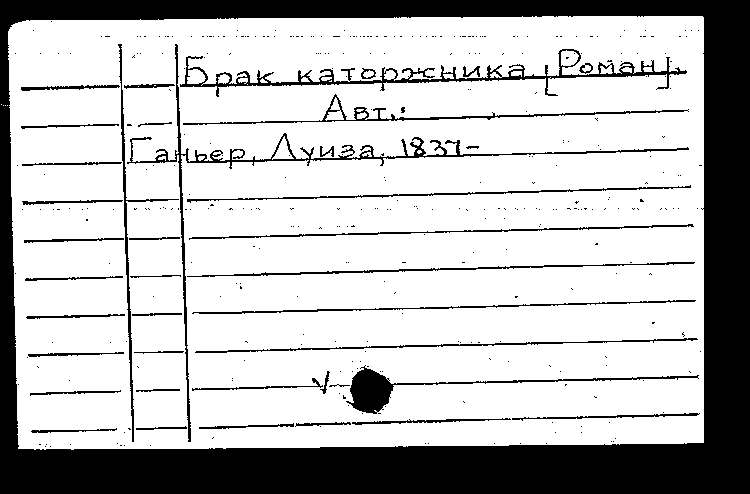 Брак каторжника [Роман].
Авт.:
Ганьер, Луиза, 1837-